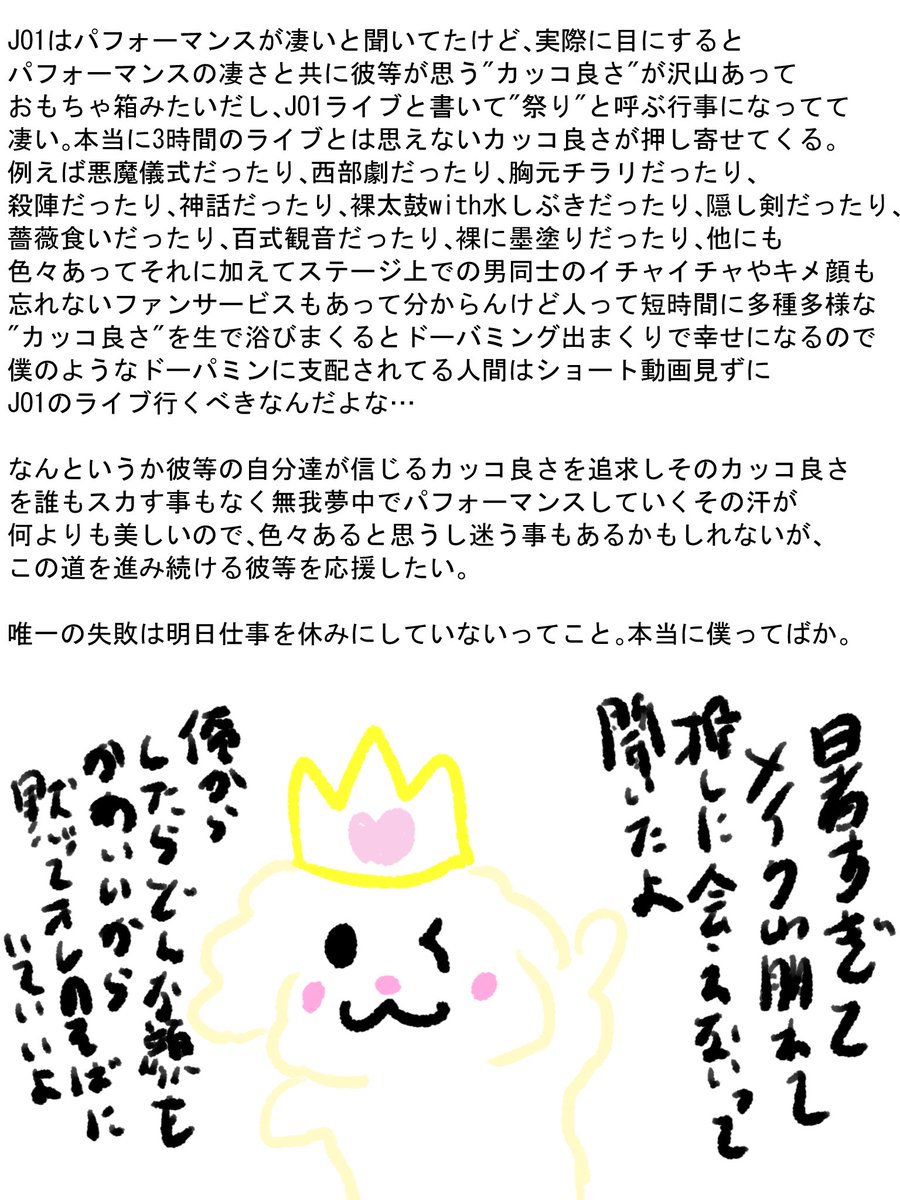 JO1はパフォーマンスが凄いと聞いてたけど、実際に目にすると
パフォーマンスの凄さと共に彼等が思う"カッコ良さ"が沢山あって
おもちゃ箱みたいだし、JO1ライブと書いて"祭り"と呼ぶ行事になってて
凄い。本当に3時間のライブとは思えないカッコ良さが押し寄せてくる。
例えば悪魔儀式だったり、西部劇だったり、胸元チラリだったり、
殺陣だったり、神話だったり、裸太鼓with水しぶきだったり、隠し剣だったり、
薔薇食いだったり、百式観音だったり、裸に墨塗りだったり、他にも
色々あってそれに加えてステージ上での男同士のイチャイチャやキメ顔も
忘れないファンサービスもあって分からんけど人って短時間に多種多様な
"カッコ良さ"を生で浴びまくるとドーバミング出まくりで幸せになるので
僕のようなドーパミンに支配されてる人間はショート動画見ずに
JO1のライブ行くべきなんだよな…
なんというか彼等の自分達が信じるカッコ良さを追求しそのカッコ良さ
を誰もスカす事もなく無我夢中でパフォーマンスしていくその汗が
何よりも美しいので、色々あると思うし迷う事もあるかもしれないが、
この道を進み続ける彼等を応援したい。
唯一の失敗は明日仕事を休みにしていないってこと。本当に僕ってばか。
暑すぎて
メイク山崩れて
推しに会えないって
聞いたよ
俺から
したらどんな顔も
かわいいから
黙ってオレのそばに
いていいよ